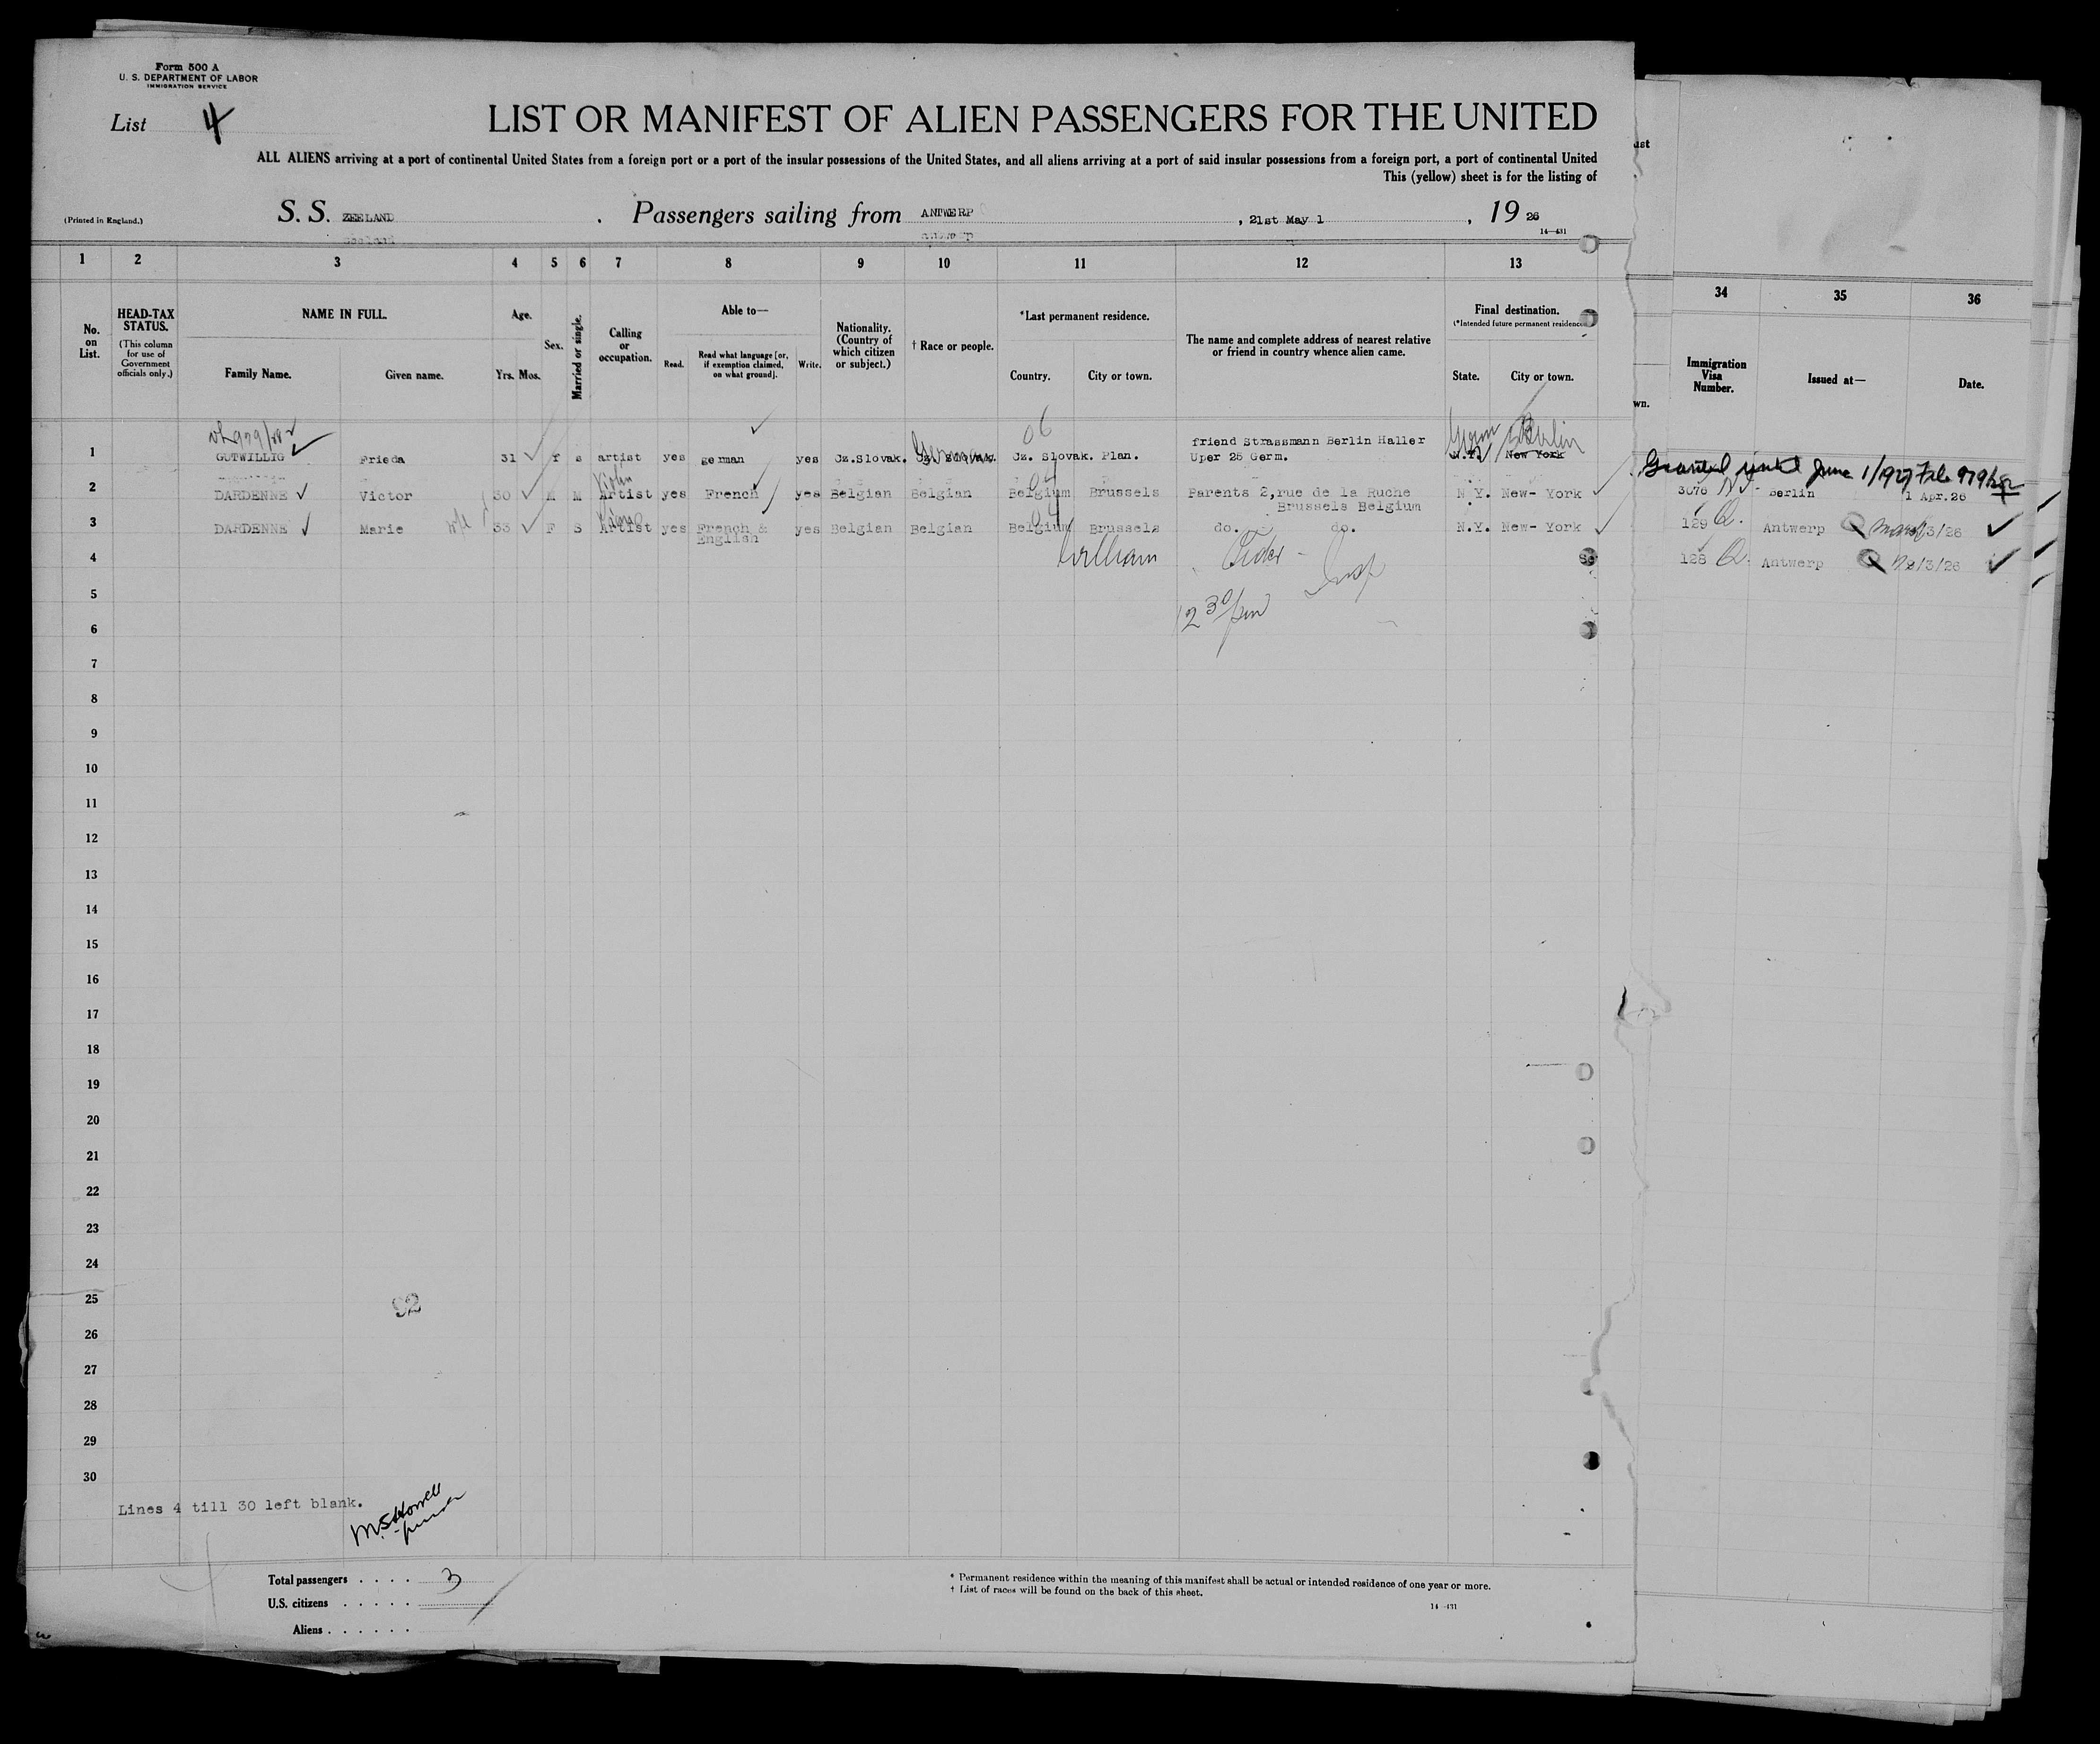 Form 500 A
U. S. DEPARTMENT OF LABOR
IMMIGRATION SERVICE
List 4
LIST OR MANIFEST OF ALIEN PASSENGERS FOR THE UNITED
ALL ALIENS arriving at a port of continental United States from a foreign port or a port of the insular possessions of the United States, and all aliens arriving at a port of said insular possessions from a foreign port, a port of continental United
This (yellow) sheet is for the listing of
(Printed in England.)
S. S. ZEELAND . Passengers sailing from ANTWERP , 21st May 1 , 19 26
14—431
1 2 3 4 5 6 7 8 9 10 11 12 13 34 35 36
No. on List.
HEAD-TAX STATUS.
(This column for use of Government officials only.)
NAME IN FULL.
Family Name. Given name.
Age.
Yrs. Mos.
Sex.
Married or single.
Calling or occupation.
Able to—
Read. Read what language [or, if exemption claimed, on what ground]. Write.
Nationality. (Country of which citizen or subject.)
† Race or people.
*Last permanent residence.
Country. City or town.
The name and complete address of nearest relative or friend in country whence alien came.
Final destination.
(*Intended future permanent residence
State. City or town.
Immigration Visa Number.
Issued at—
Date.
wn.
1 GUTWILLIG Frieda 31 f s artist yes german yes Cz.Slovak. German Cz. Slovak. Plan. friend Strassmann Berlin Haller N.Y. New York
Uper 25 Germ.
Germ Berlin
06
Granted until June 1/1927 File 979
2 DARDENNE Victor 30 M M Artist yes French yes Belgian Belgian Belgium Brussels Parents 2,rue de la Ruche N Y. New- York
Brussels Belgium
Violin
3076 Berlin 1 Apr.26
3 DARDENNE Marie wife 33 F S Artist yes French & yes Belgian Belgian Belgium Brussels do. do. N.Y. New- York
English
129 Q. Antwerp 3/26
128 Q. Antwerp 3/26
4
William
Insp
5
12 30/pm
6
7
8
9
10
11
12
13
14
15
16
17
18
19
20
21
22
23
24
25
92
26
27
28
29
30
Lines 4 till 30 left blank.
Total passengers . . . . 3
U.S. citizens . . . . .
Aliens . . . . . .
* Permanent residence within the meaning of this manifest shall be actual or intended residence of one year or more.
† List of races will be found on the back of this sheet.
14—431